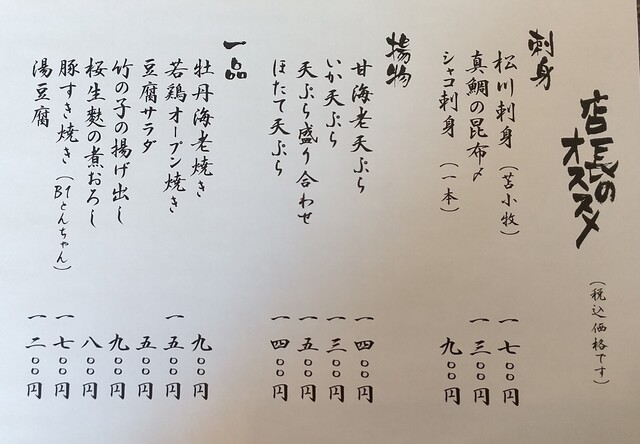 店長の
オススメ
(税込価格です)
刺身
松川刺身(苫小牧) 一七〇〇円
真鯛の昆布〆 一三〇〇円
シャコ刺身(一本) 九〇〇円
揚物
甘海老天ぷら 一四〇〇円
いか天ぷら 一三〇〇円
天ぷら盛り合わせ 一五〇〇円
ほたて天ぷら 一四〇〇円
一品
牡丹海老焼き 九〇〇円
若鶏オーブン焼き 一五〇〇円
豆腐サラダ 五〇〇円
竹の子の揚げ出し 九〇〇円
桜生麩の煮おろし 八〇〇円
豚すき焼き(B1とんちゃん) 一七〇〇円
湯豆腐 一二〇〇円